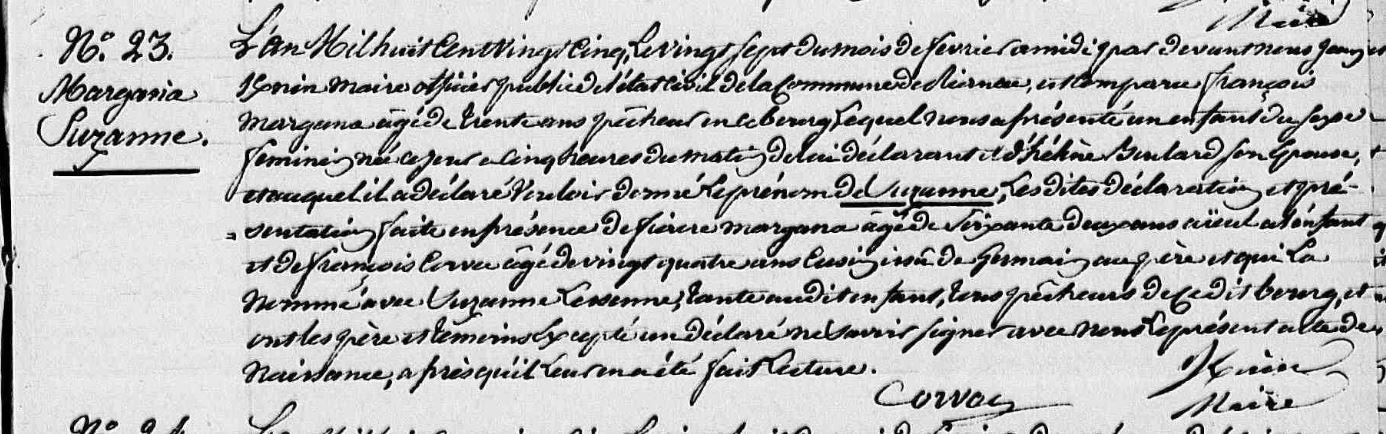 Maire
N.º 23.
Margana
Suzanne.
L'An Mil huit Cent Vingt Cinq, Le vingt sept du mois de fevrier a midi, par devant nous
maire officier public de l'état civil de la Commune de est Comparu françois
margana âgé de trente ans pêcheur en ce bourg, Lequel nous a présenté un enfant du sexe
feminin née ce jour a Cinq heures du matin de lui déclarant et d'héléne Boulard son épouse,
et auquel il a déclaré Vouloir donné Le prénom de Suzanne, Les dites déclaration et pré-
sentation faite en présence de pierre margana âgé de Soixante deux ans aïeul a L'énfant
et de françois Corvec âgé de vingt quatre ans Cusin issû de Germain au père et qui La
Nommé avec Suzanne tante audit enfant, tous pêcheurs de Ce dit bourg, et
ont les père et temoins Excepté un déclaré ne Savoir signer avec nous Le présent acte de
Naissance, après qu'il Leur en a été fait Lecture.
Corvec
Maire
N.º 24